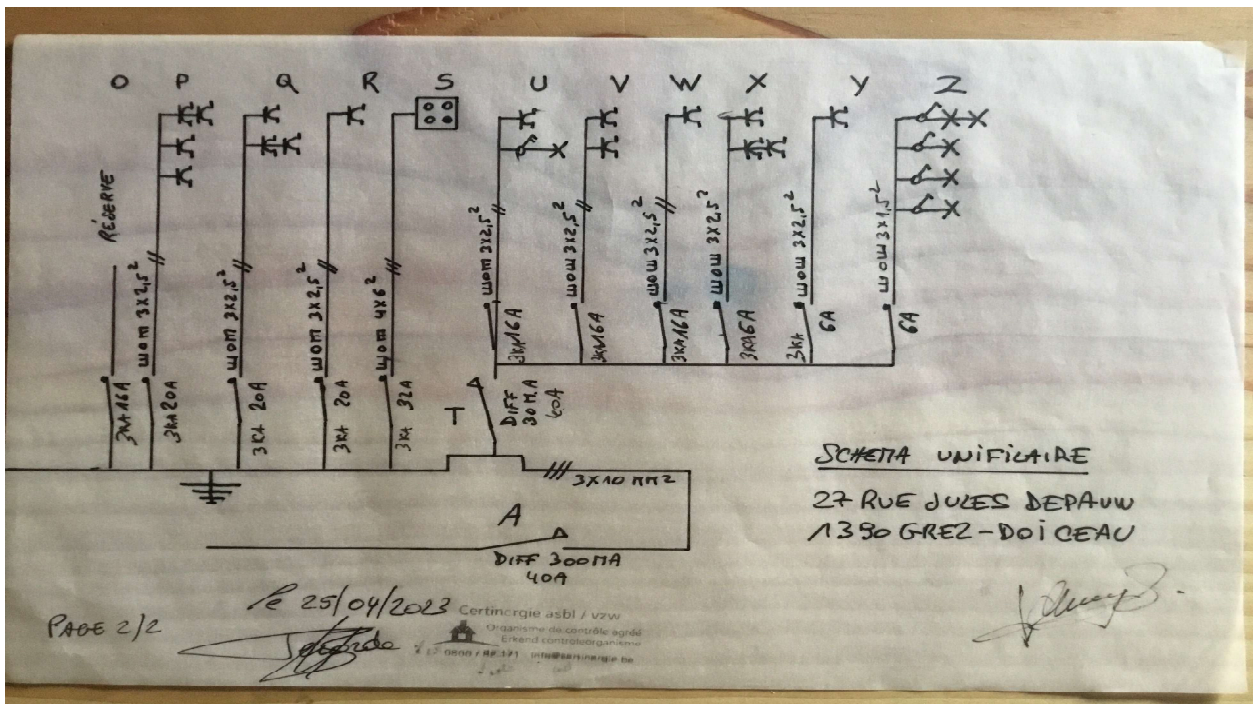 O P Q R S U V W X Y Z
RÉSERVE
3KA 16A
VOB 3X2,5²
3KA 20A
3X2,5²
3KA 20A
3X2,5²
3KA 20A
4X6²
3KA 32A
T
DIFF
30MA
40A
3X2,5²
3KA 16A
3X2,5²
3KA 16A
3X2,5²
3KA 16A
3X2,5²
3KA 6A
3X2,5²
3KA 6A
3X1,5²
6A
3X10 MM2
A
DIFF 300MA
40A
SCHEMA UNIFILAIRE
27 RUE JULES DEPAUW
1390 GREZ-DOICEAU
le 25/04/2023
PAGE 2/2
Certinergie asbl / vzw
Organisme de contrôle agréé
Erkend controleorganisme